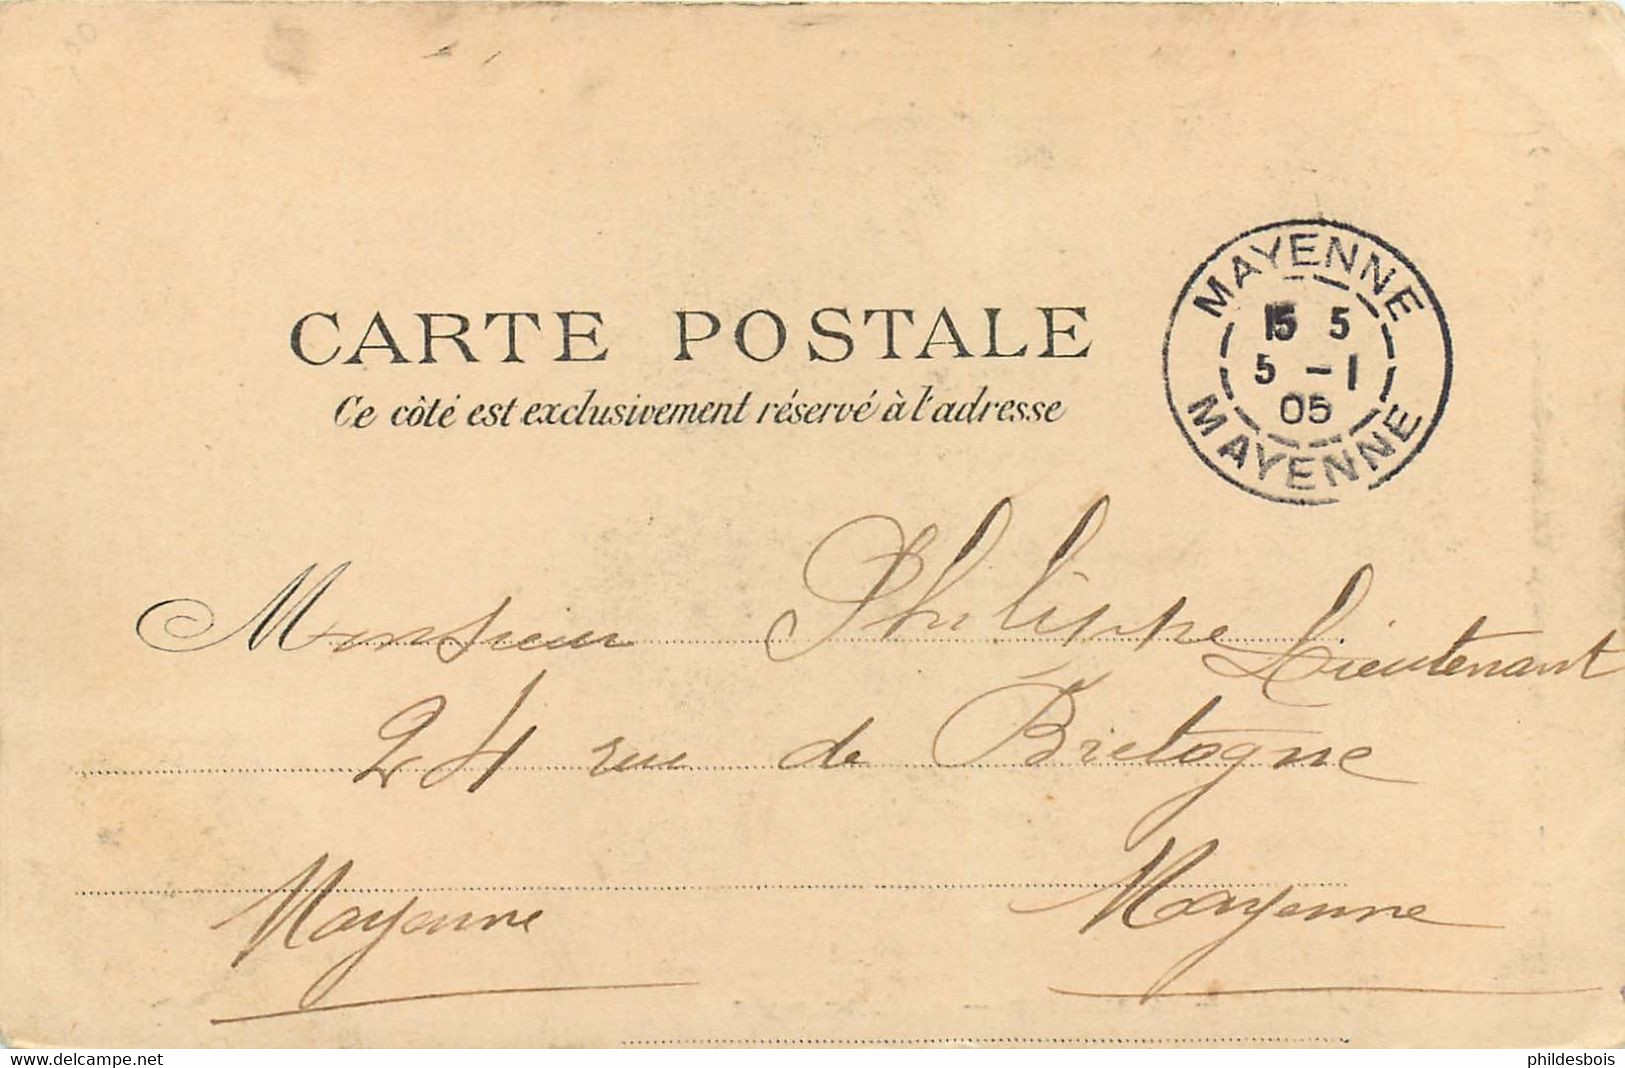 MAYENNE
15 5
5 - 1
05
MAYENNE
CARTE POSTALE
Ce côté est exclusivement réservé à l'adresse
Monsieur Philippe Lieutenant
24 rue de Bretagne
Mayenne Mayenne
www.delcampe.net
phildesbois